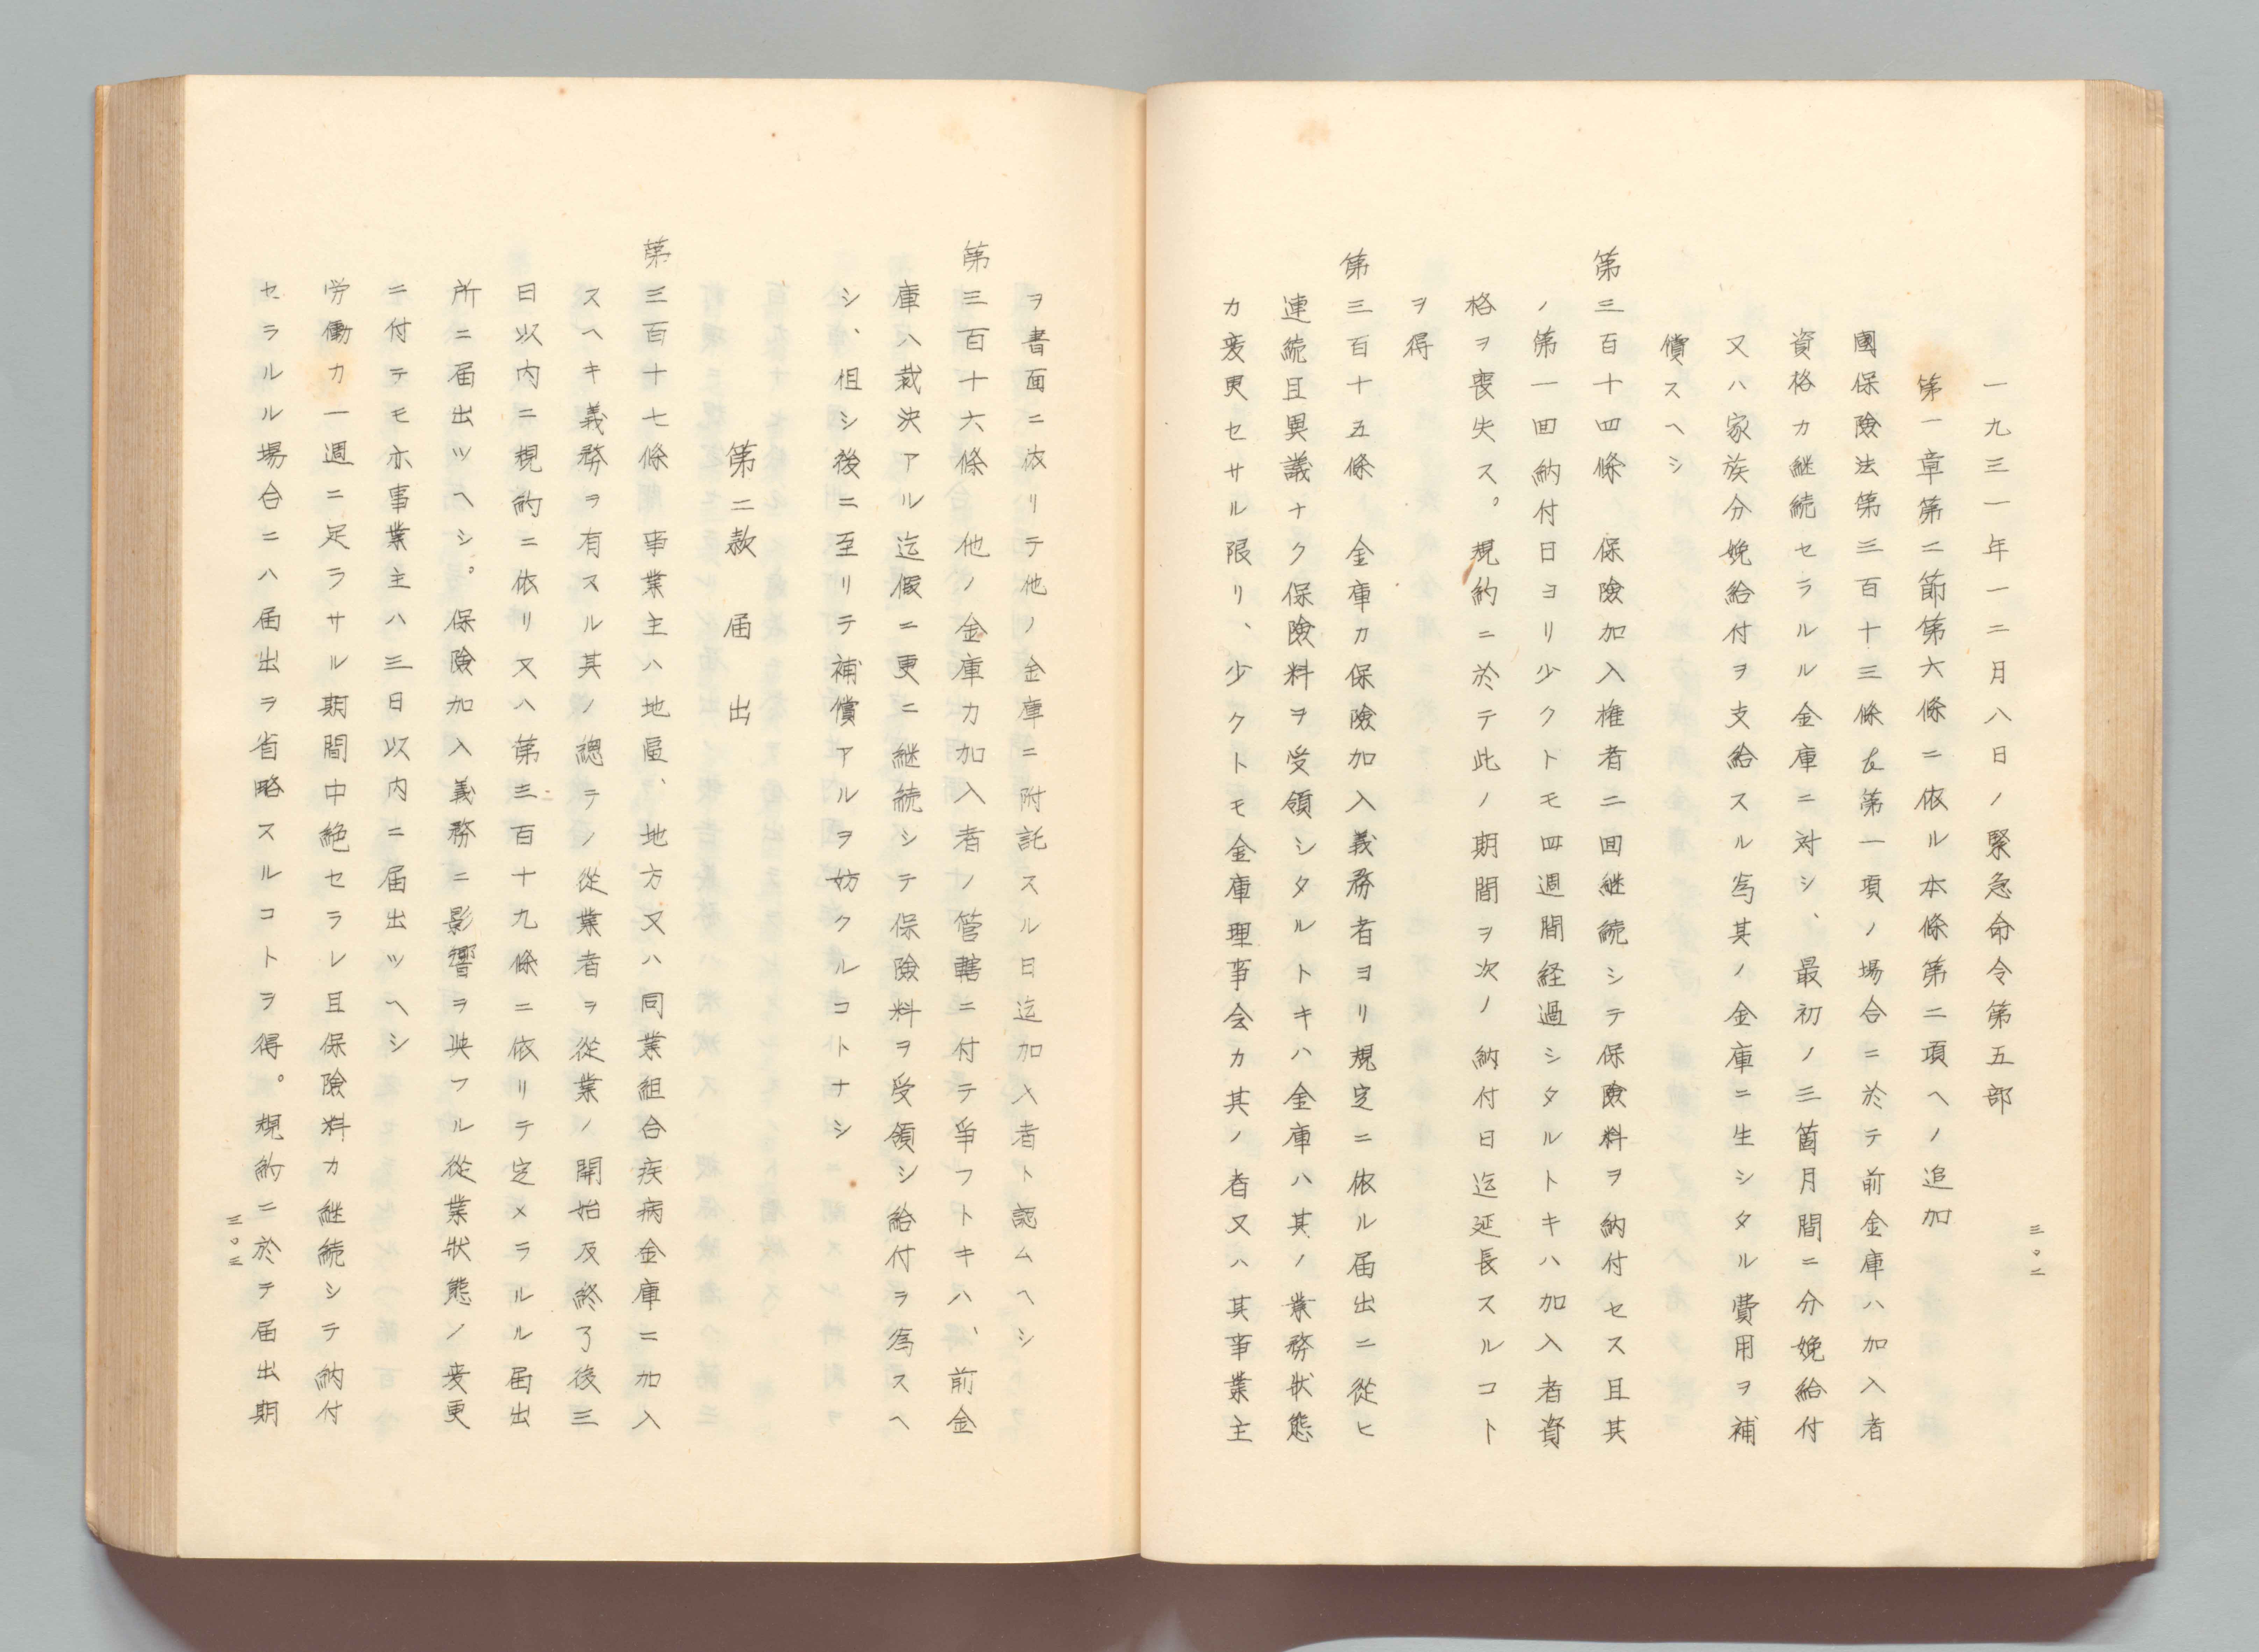 三〇二
一九三一年一二月八日ノ緊急命令第五部
第一章第二節第六條ニ依ル本條第二項ヘノ追加
國保險法第三百十三條a第一項ノ場合ニ於テ前金庫ハ加入者
資格カ継続セラルル金庫ニ対シ、最初ノ三箇月間ニ分娩給付
又ハ家族分娩給付ヲ支給スル為其ノ金庫ニ生シタル費用ヲ補
償スヘシ
第三百十四條 保險加入権者二回継続シテ保險料ヲ納付セス且其
ノ第一回納付日ヨリ少クトモ四週間経過シタルトキハ加入者資
格ヲ喪失ス。規約ニ於テ此ノ期間ヲ次ノ納付日迄延長スルコト
ヲ得
第三百十五條 金庫カ保險加入義務者ヨリ規定ニ依ル届出ニ從ヒ
連続且異議ナク保險料ヲ受領シタルトキハ金庫ハ其ノ業務狀態
カ変更セサル限リ、少クトモ金庫理事会カ其ノ者又ハ其事業主
ヲ書面ニ依リテ他ノ金庫ニ附託スル日迄加入者ト認ムヘシ
第三百十六條 他ノ金庫カ加入者ノ管轄ニ付テ爭フトキハ、前金
庫ハ裁決アル迄假ニ更ニ継続シテ保險料ヲ受領シ給付ヲ為スヘ
シ、但シ後ニ至リテ補償アルヲ妨クルコトナシ
第二款 届出
第三百十七條 事業主ハ地區、地方又ハ同業組合疾病金庫ニ加入
スヘキ義務ヲ有スル其ノ總テノ從業者ヲ從業ノ開始及終了後三
日以内ニ規約ニ依リ又ハ第三百十九條ニ依リテ定メラルル届出
所ニ届出ツヘシ。保險加入義務ニ影響ヲ與フル從業狀態ノ変更
ニ付テモ亦事業主ハ三日以内ニ届出ツヘシ
労働カ一週ニ足ラサル期間中絶セラレ且保險料カ継続シテ納付
セラルル場合ニハ届出ヲ省略スルコトヲ得。規約ニ於テ届出期
三〇三